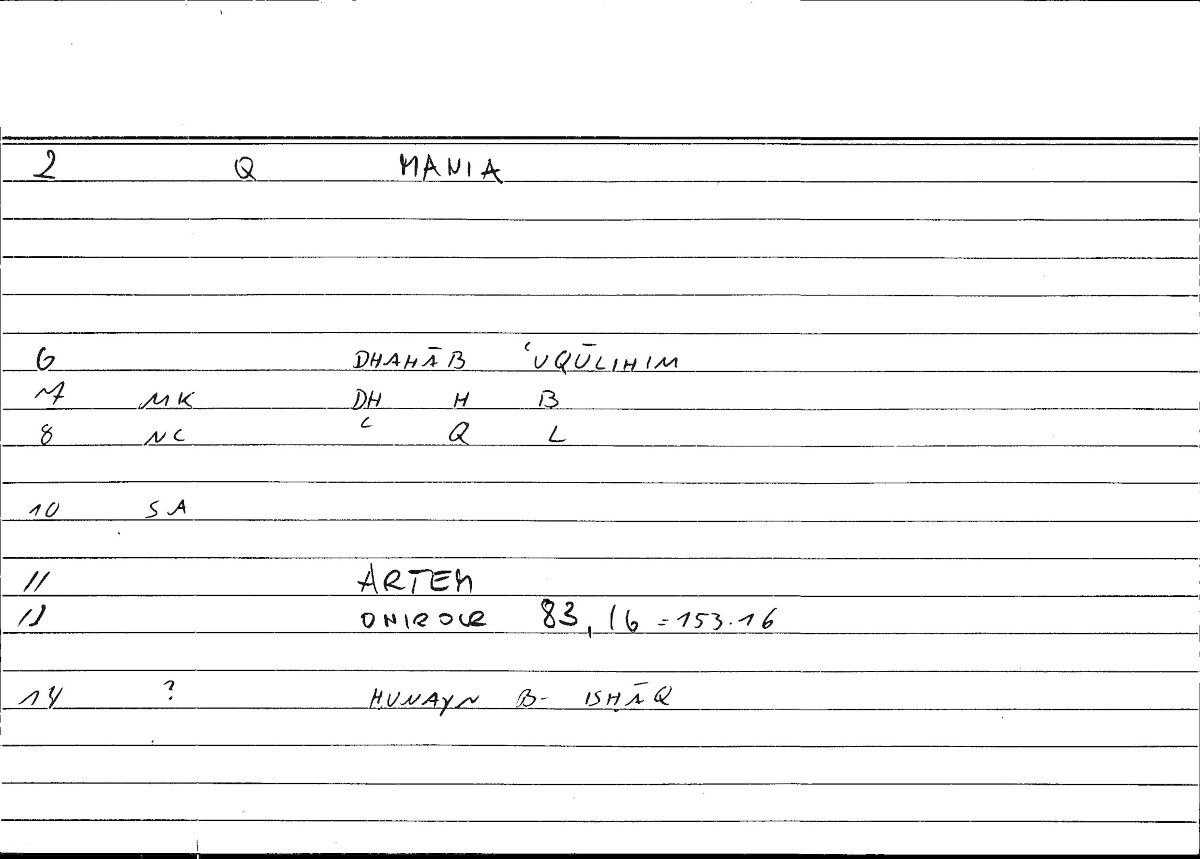 2 Q MANIA
6 DHAHĀB ʿUQŪLIHIM
7 MK DH H B
8 NC ʿ Q L
10 SA
11 ARTEM
12 ONIROCR 83, 16 = 153.16
14 ? ḤUNAYN B- ISḤĀQ